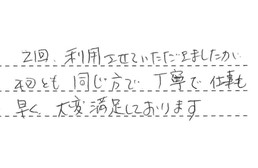 2回、利用させていただきましたが
2回とも同じ方で、丁寧で仕事も
早く、大変満足しております